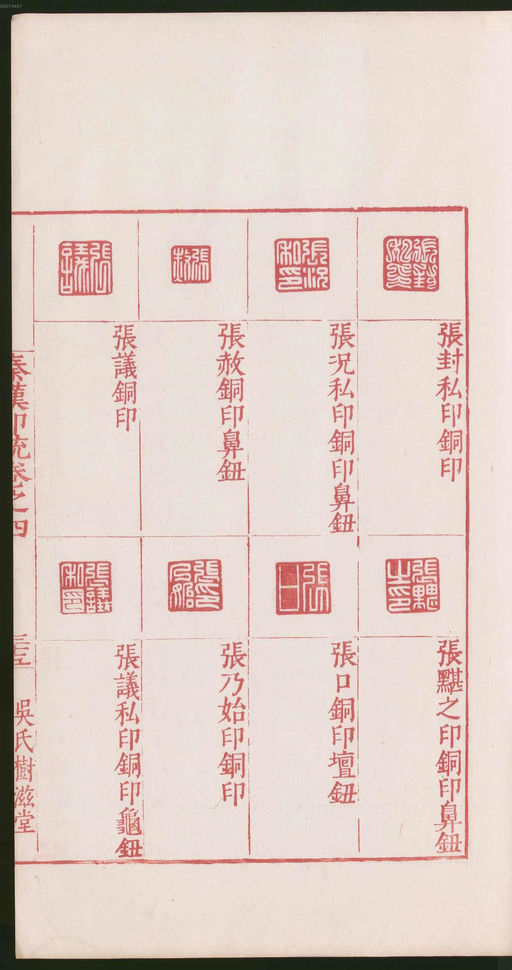 張封私印銅印
張況私印銅印鼻鈕
張赦銅印鼻鈕
張議銅印
張之印銅印鼻鈕
張口銅印壇鈕
張乃始印銅印
張議私印銅印龜鈕
秦漢印統卷之四
吳氏樹滋堂
00073487